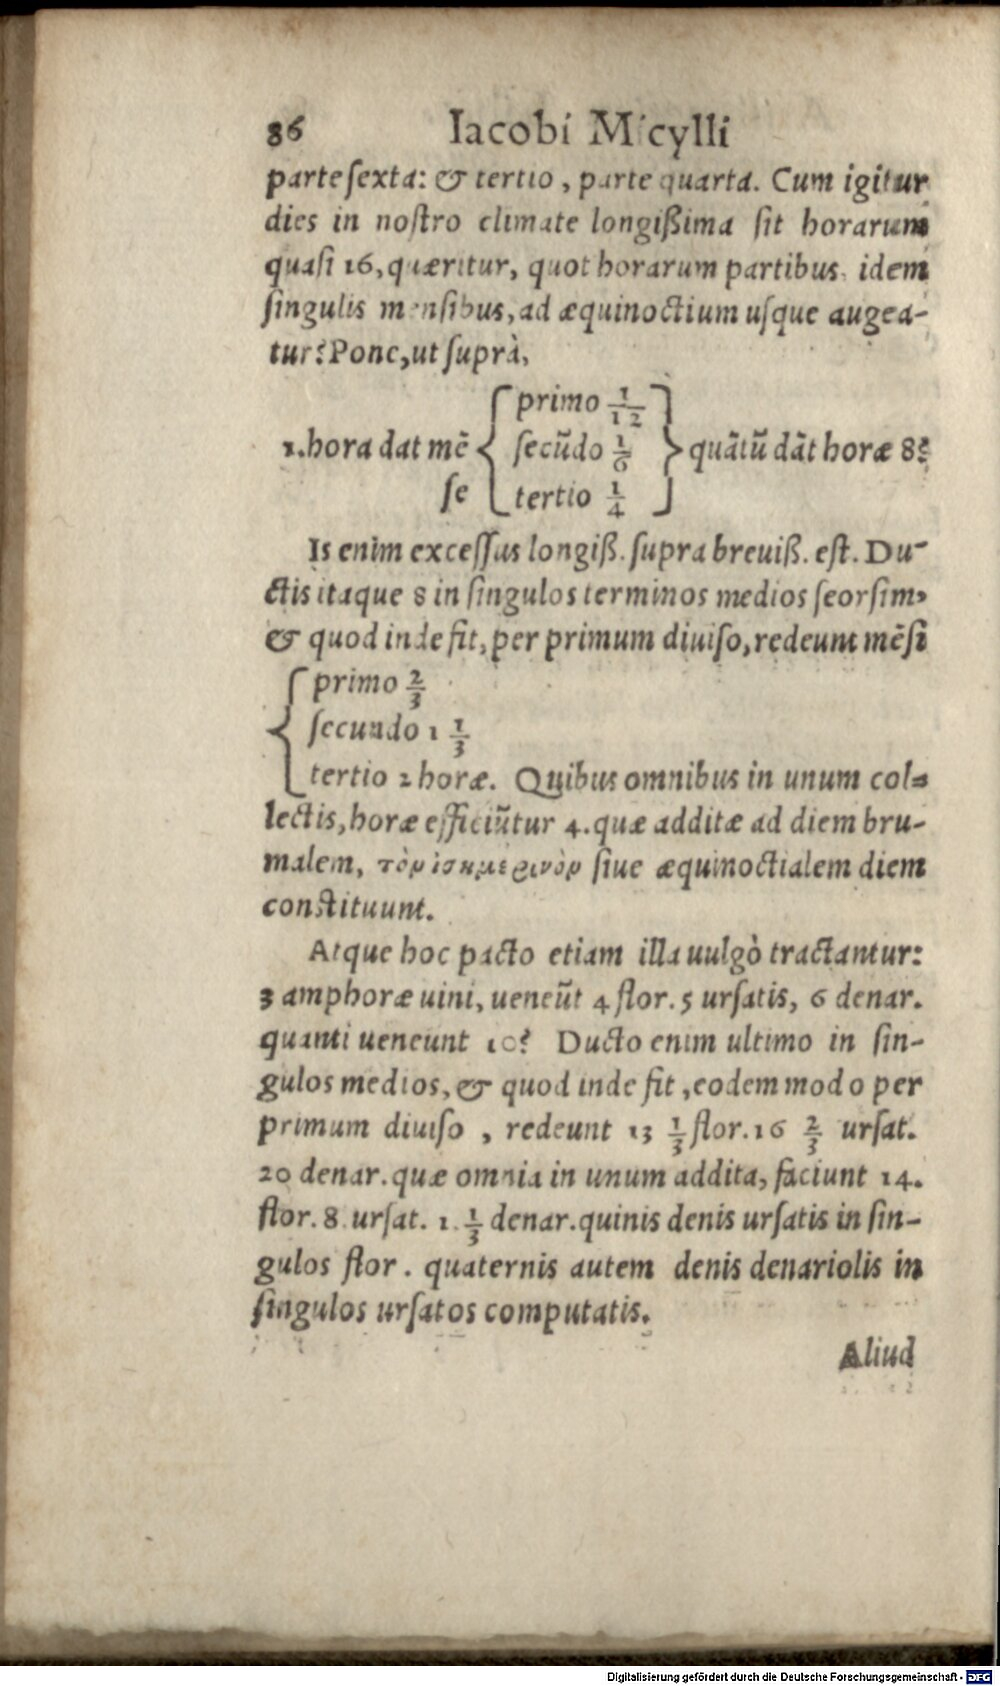 86 Iacobi Micylli
parte ſexta: & tertio, parte quarta. Cum igitur
dies in noſtro climate longißima ſit horarum
quaſi 16, quæritur, quot horarum partibus idem
ſingulis menſibus, ad æquinoctium uſque augea-
tur? Pone, ut ſuprà,
primo 1/12
1. hora dat mẽ ſecũdo 1/6 quãtũ dãt horæ 8?
ſe tertio 1/4
Is enim exceſſus longiß. ſupra breuiß. eſt. Du-
ctis itaque 8 in ſingulos terminos medios ſeorſim,
& quod inde fit, per primum diuiſo, redeunt mẽſi
primo 2/3
ſecundo 1 1/3
tertio 2 horæ. Quibus omnibus in unum col-
lectis, horæ efficiũtur 4. quæ additæ ad diem bru-
malem, τὸν ἰσημερινὸν ſiue æquinoctialem diem
constituunt.
Atque hoc pacto etiam illa uulgò tractantur:
3 amphoræ uini, ueneũt 4 flor. 5 urſatis, 6 denar.
quanti ueneunt 10? Ducto enim ultimo in ſin-
gulos medios, & quod inde fit, eodem modo per
primum diuiſo, redeunt 13 1/3 flor. 16 2/3 urſat.
20 denar. quæ omnia in unum addita, faciunt 14.
flor. 8 urſat. 1 1/3 denar. quinis denis urſatis in ſin-
gulos flor. quaternis autem denis denariolis in
ſingulos urſatos computatis.
Aliud
Digitalisierung gefördert durch die Deutsche Forschungsgemeinschaft - DFG